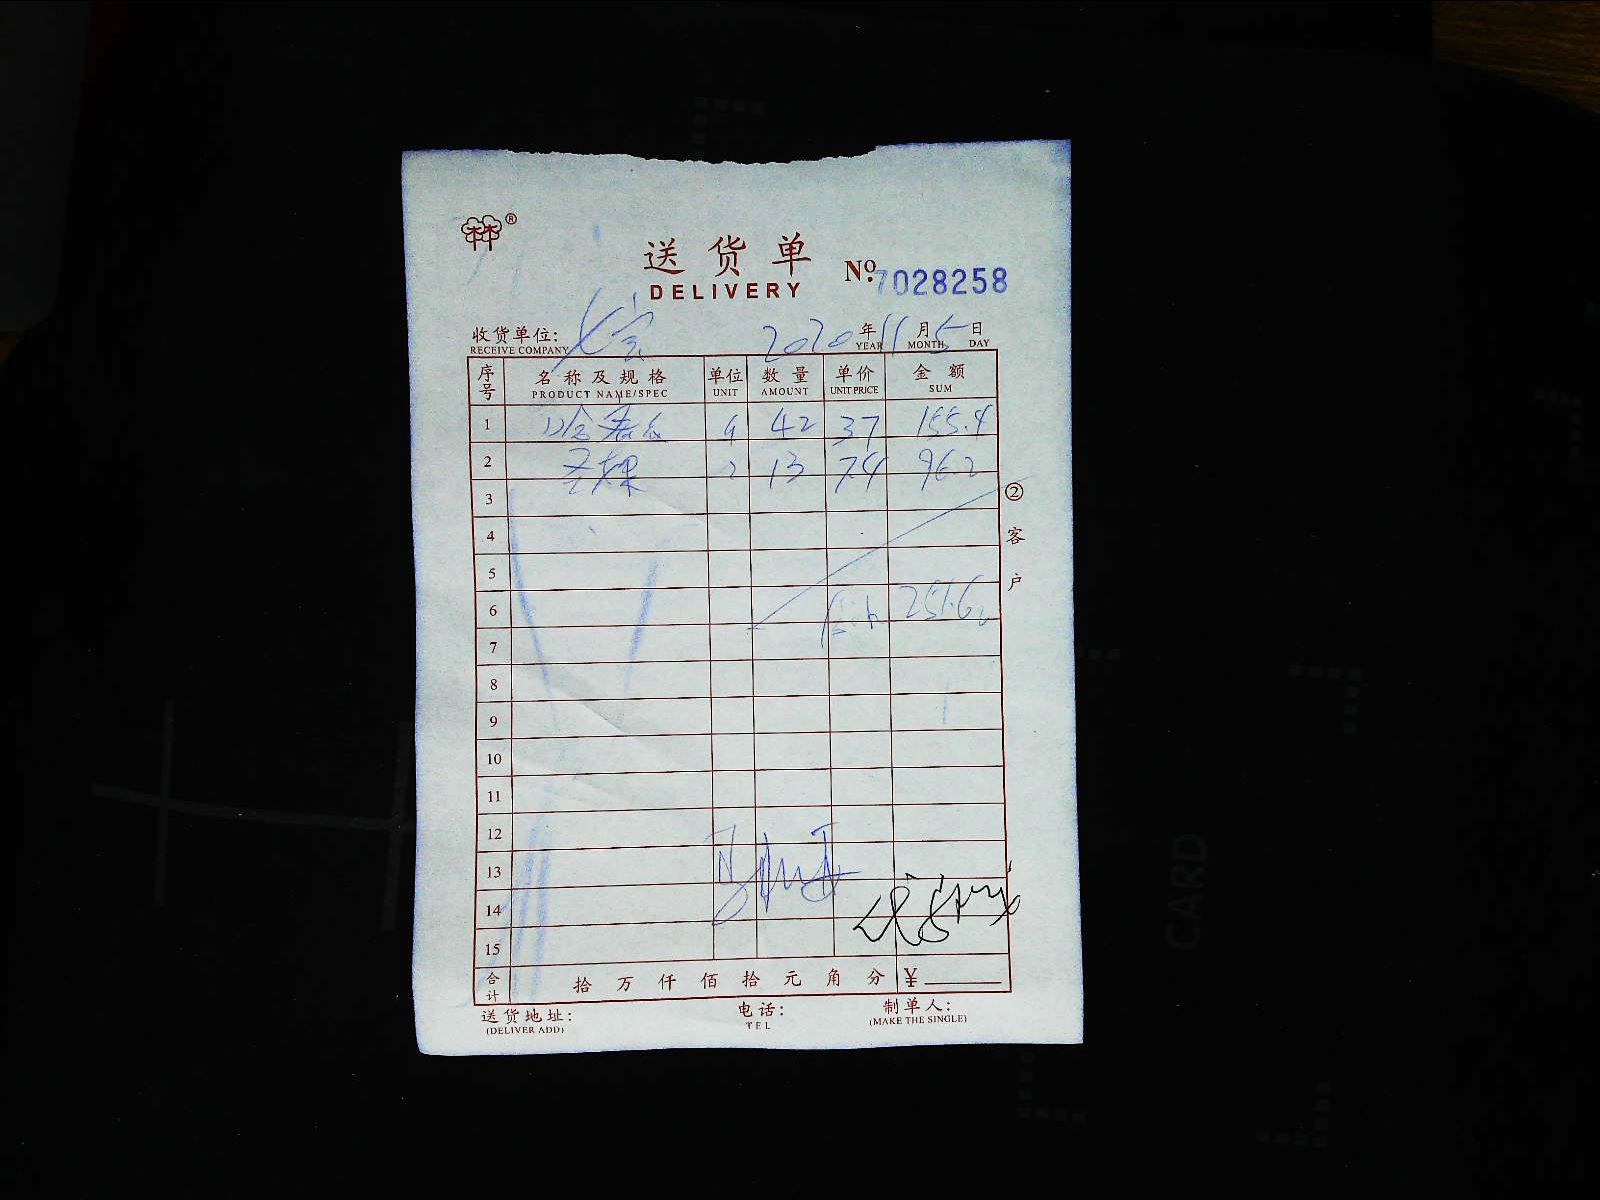 ®
送货单
DELIVERY
No. 7028258
收货单位: 七宝 2020 年 11 月 5 日
RECEIVE COMPANY YEAR MONTH DAY
序号 名称及规格 单位 数量 单价 金额
PRODUCT NAME/SPEC UNIT AMOUNT UNIT PRICE SUM
1 42 37 155.4
2 13 7.4 96.2
3
4
5
6 251.6
7
8
9
10
11
12
13
14
15
合计 拾 万 仟 佰 拾 元 角 分 ¥
② 客户
送货地址: 电话: 制单人:
(DELIVER ADD) TEL (MAKE THE SINGLE)
CARD